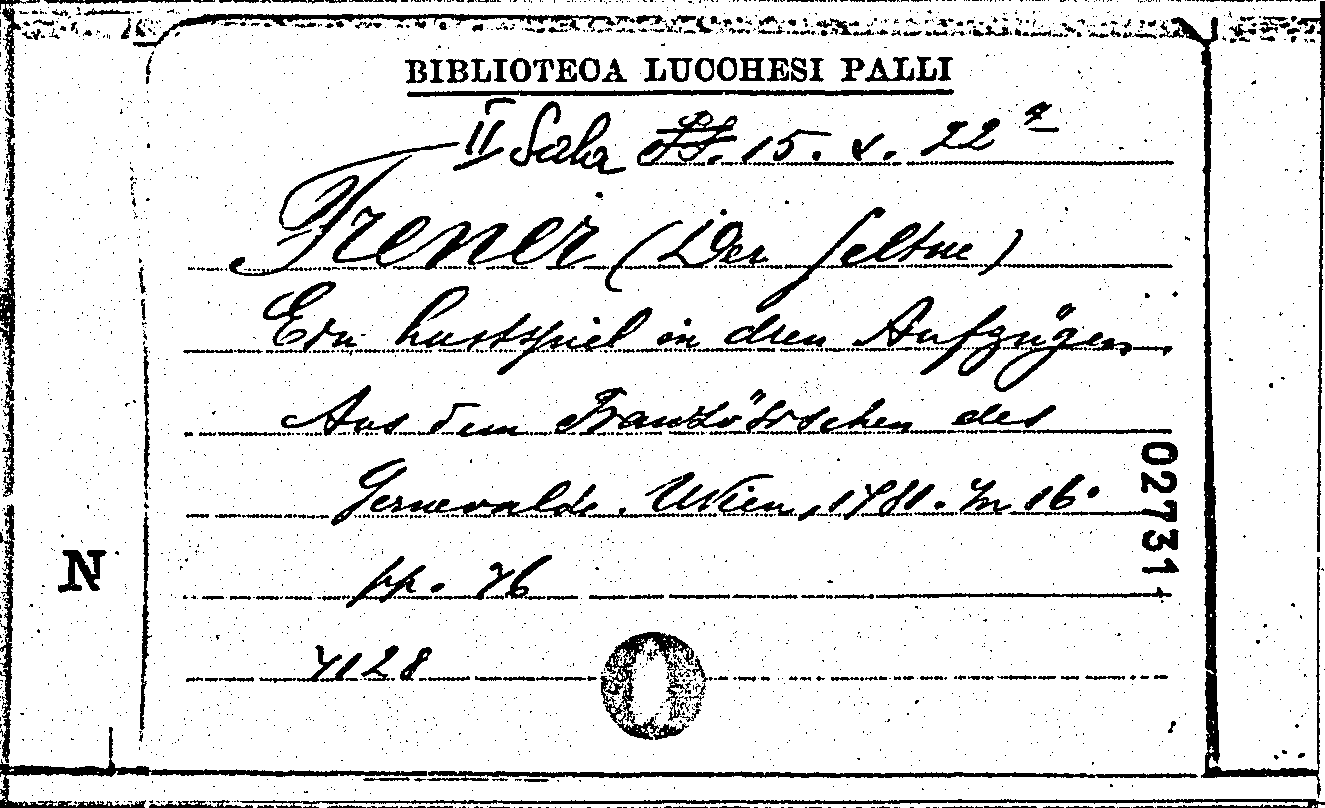 BIBLIOTECA LUCCHESI PALLI
II Sala 15. V. 22
Frener (Der seltne)
Ein Lustspiel in dren Aufzügen.
Aus dem Französischen des
Wien, 1781. In 16°
pp. 76
7128
N
02731